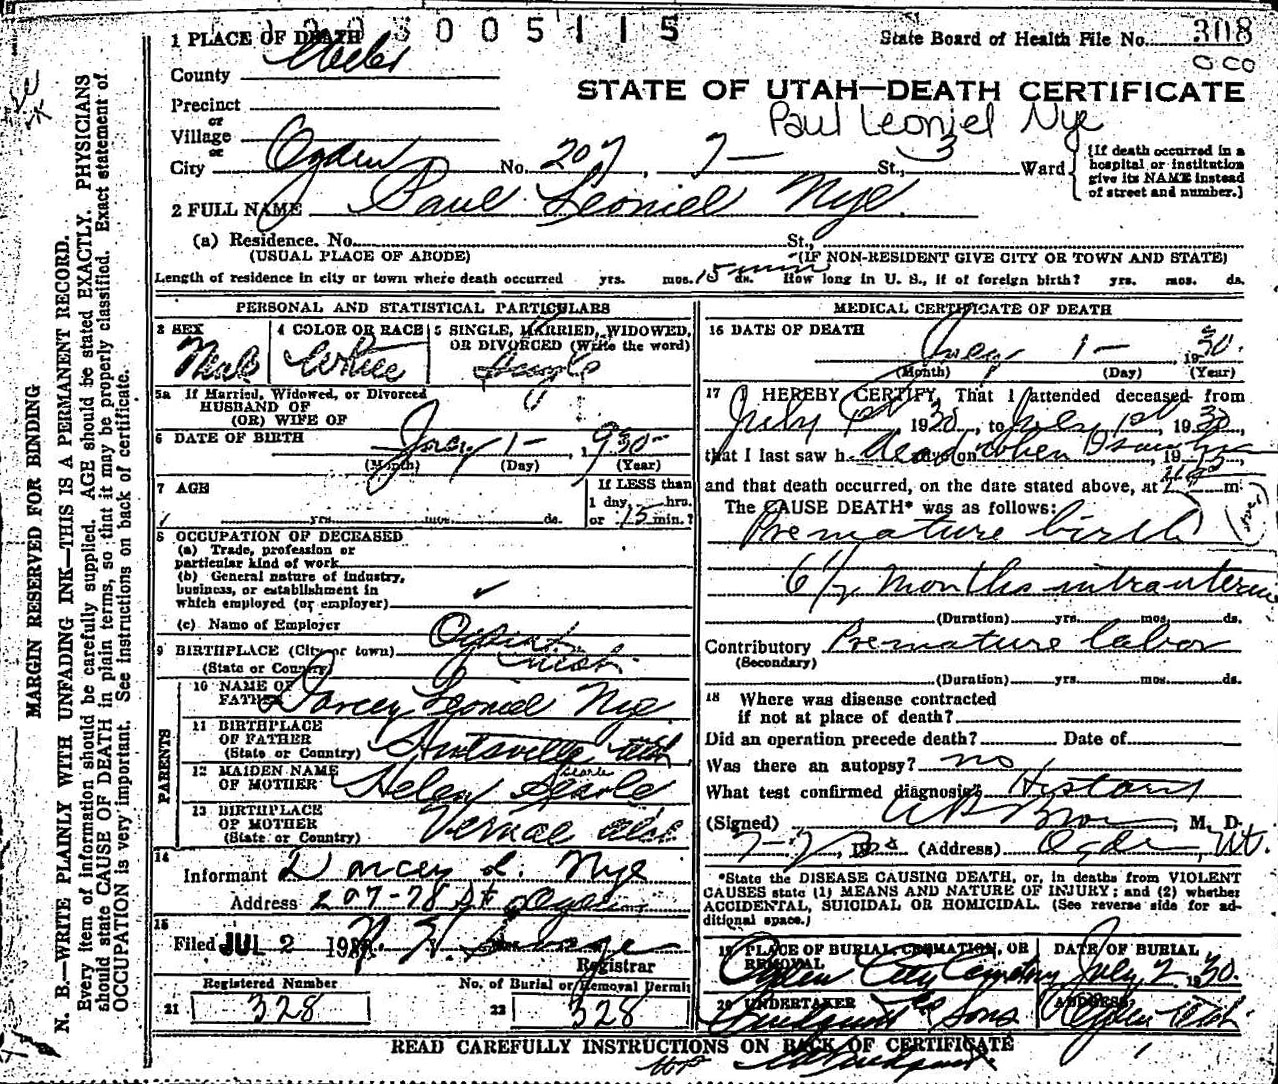 3005115
1 PLACE OF DEATH
State Board of Health File No. 308
County Weber
STATE OF UTAH—DEATH CERTIFICATE
Precinct
or
Paul Leoniel Nye
Village
or
City Ogden No. 207, 7— St., 3 Ward
{If death occurred in a hospital or institution give its NAME instead of street and number.}
2 FULL NAME Paul Leoniel Nye
(a) Residence. No. St.,
(USUAL PLACE OF ABODE) (IF NON-RESIDENT GIVE CITY OR TOWN AND STATE)
Length of residence in city or town where death occurred yrs. mos. 15 min ds. How long in U. S., if of foreign birth? yrs. mos. ds.
PERSONAL AND STATISTICAL PARTICULARS
3 SEX Male
4 COLOR OR RACE White
5 SINGLE, MARRIED, WIDOWED, OR DIVORCED (Write the word) Single
5a If Married, Widowed, or Divorced
HUSBAND OF
(OR) WIFE OF
6 DATE OF BIRTH July 1— 1930—
(Month) (Day) (Year)
7 AGE
yrs. mos. ds.
If LESS than
1 day, hrs.
or 15 min.?
8 OCCUPATION OF DECEASED
(a) Trade, profession or
particular kind of work
(b) General nature of industry,
business, or establishment in
which employed (or employer)
(c) Name of Employer
9 BIRTHPLACE (City or town) Ogden
(State or Country) Utah
PARENTS
10 NAME OF
FATHER Darcey Leoniel Nye
11 BIRTHPLACE
OF FATHER
(State or Country) Huntsville Utah
12 MAIDEN NAME
OF MOTHER Helen Searle
13 BIRTHPLACE
OF MOTHER
(State or Country) Vernal Utah
14
Informant Darcey L. Nye
Address 207-7th St Ogden
15
Filed JUL 2 19
Registrar
Registered Number
21 328
No. of Burial or Removal Permit
22 328
MEDICAL CERTIFICATE OF DEATH
16 DATE OF DEATH
July 1— , 1930.
(Month) (Day) (Year)
17 I HEREBY CERTIFY, That I attended deceased from
July 1st 1930, to July 1st 1930,
that I last saw h alive on dead when I saw him, 19
and that death occurred, on the date stated above, at m.
The CAUSE DEATH* was as follows:
Premature birth
6 1/2 months intrauterine
(Duration) yrs. mos. ds.
Contributory Premature labor
(Secondary)
(Duration) yrs. mos. ds.
18 Where was disease contracted
if not at place of death?
Did an operation precede death? Date of
Was there an autopsy? no
What test confirmed diagnosis? History
(Signed) , M. D.
7-2, 1930 (Address) Ogden, Ut.
*State the DISEASE CAUSING DEATH, or, in deaths from VIOLENT
CAUSES state (1) MEANS AND NATURE OF INJURY; and (2) whether
ACCIDENTAL, SUICIDAL OR HOMICIDAL. (See reverse side for additional space.)
19 PLACE OF BURIAL, CREMATION, OR REMOVAL
Ogden City Cemetery
DATE OF BURIAL
July 2 1930.
20 UNDERTAKER
Lindquist & Sons
ADDRESS
Ogden Utah
READ CAREFULLY INSTRUCTIONS ON BACK OF CERTIFICATE
MARGIN RESERVED FOR BINDING
N. B.—WRITE PLAINLY WITH UNFADING INK—THIS IS A PERMANENT RECORD.
Every item of information should be carefully supplied. AGE should be stated EXACTLY. PHYSICIANS
should state CAUSE OF DEATH in plain terms, so that it may be properly classified. Exact statement of
OCCUPATION is very important. See instructions on back of certificate.